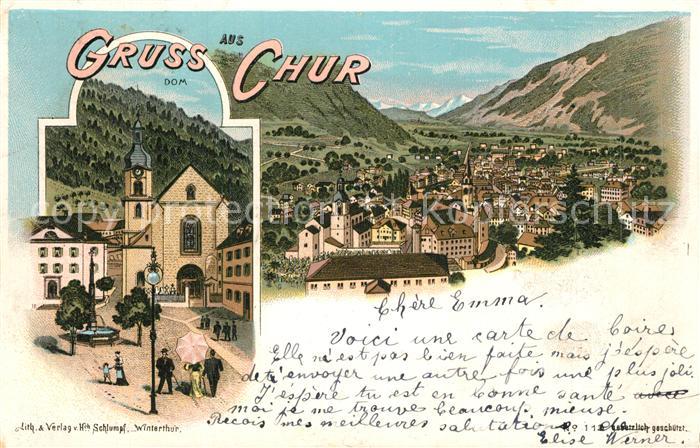 GRUSS AUS CHUR
DOM
Chère Emma.
Voici une carte de Coire,
Elle n'est pas bien faite mais j'éspère
de t'envoyer une autre fois une plus joli.
J'éspère tu est en bonne santé
moi je me trouve beaucoup mieuse.
Reçois mes meilleures salutations
Elise Werner.
Lith. & Verlag v. Hch Schlumpf, Winterthur.
gesetzlich geschützt.